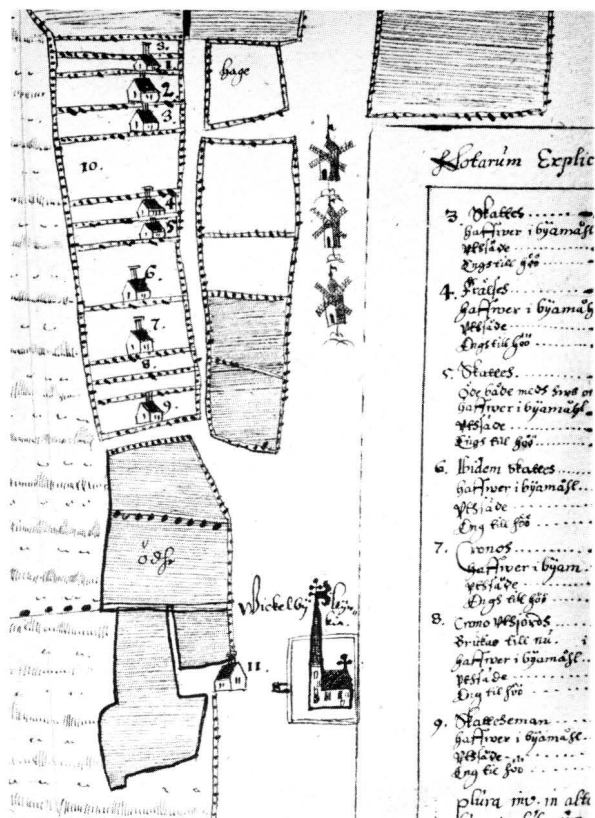 8.
1
2
3.
hage
10.
4
5
6.
7.
8.
9.
Öde
Wickelby kÿr=
kia.
11.
Notarum Explic
3. Skattes
haffwer i bÿamåhl
Utsäde
Engs till höö
4. Frälses
haffwer i bÿamåh
Utsäde
Engs till höö
5. Skattes.
Öde både medh
haffwer i bÿamåhl
Utsäde
Engs till höö
6. Ibidem Skattes
haffwer i bÿamåhl
Utsäde
Eng till höö
7. Cronos
haffwer i bÿam
Utsäde
Engs till höö
8. Crono Utsjords
Brukas till nu. i
haffwer i bÿamåhl
Utsäde
Eng til höö
9. Skattseman
haffwer i bÿamåhl
Utsäde
Eng till höö
plura inv. in alt